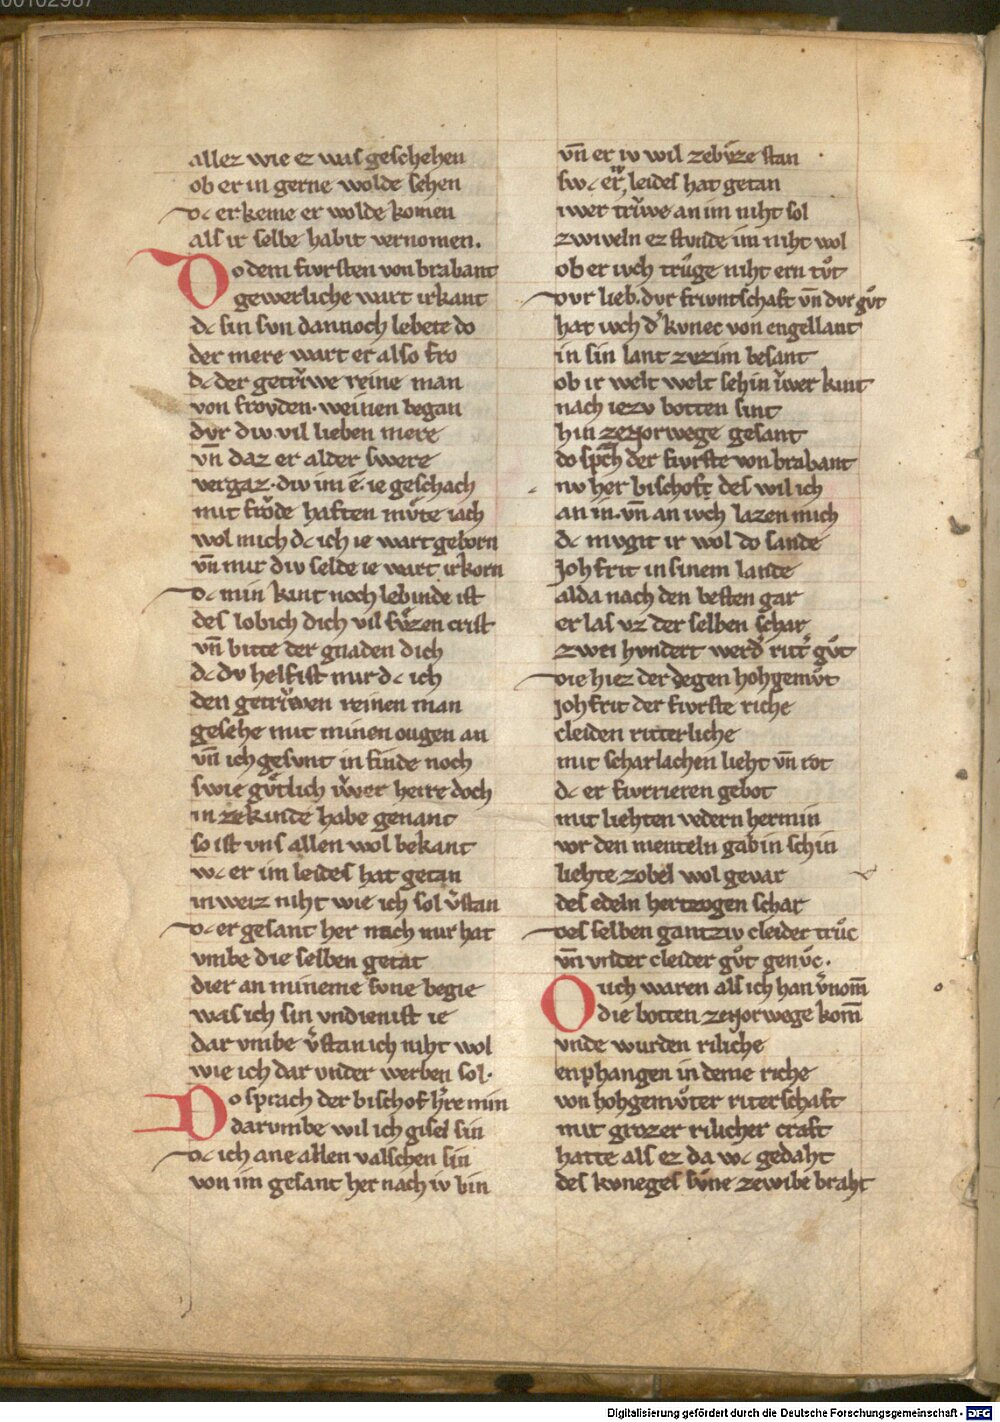 00102987
allez wie ez was geschehen
ob er in gerne wolde sehen
dc er keme er wolde komen
als ir selbe habit vernomen.
Do dem fivrsten von brabant
gewerliche wart irkant
dc sin svn dannoch lebete do
der mere wart er also fro
dc der getrͮwe reine man
von froyden. weinen began
dvr div vil lieben mere
vn̄ daz er alder swere
vergaz. div im e. ie geschach
mit frͦde haften mͦte iach
wol mich dc ich ie wart geborn
vn̄ mir div selde ie wart irkorn
dc min kint noch lebinde ist
des lobich dich vil sͮzen crist
vn̄ bitte der gnaden dich
dc dv helfist mir dc ich
den getrͮwen reinen man
gesehe mit minen ougen an
vn̄ ich gesvnt in finde noch
swie gͤtlich ͮwer herre doch
in zekinde habe genant
so ist vns allen wol bekant
wc er im leides hat getan
in weiz niht wie ich sol v̓stan
dc er gesant her nach mir hat
vmbe die selben getat
dier an mineme svne begie
was ich sin vndienist ie
dar vmbe v̓stan ich niht wol
wie ich dar vnder werben sol.
Do sprach der bischof h̓re min
darvmbe wil ich gisel sin
dc ich ane allen valschen sin
von im gesant her nach iv bin
vn̄ er iv wil zebͮze stan
swc er ͮ leides hat getan
iwer trͮwe an im niht sol
zwiveln ez stvnde im niht wol
ob er ivch trͮge niht ern tͦt
dvr lieb. dvr frivntschaft vn̄ dvr gͦt
hat ivch d̓ kvnec von engellant
in sin lant zvzim besant
ob ir welt welt sehin ͮwer kint
nach iezv botten sint
hin zenorwege gesant
do spͣch der fivrste von brabant
nv her bischoft des wil ich
an in. vn̄ an ivch lazen mich
dc mvgit ir wol do sande
Johfrit in sinem lande
alda nach den besten gar
er las vz der selben schar
zwei hvndert werd̓ ritt̓ gͦt
die hiez der degen hohgemͦt
johfrit der fivrste riche
cleiden ritterliche
mit scharlachen lieht vn̄ rot
dc er fivrrieren gebot
mit liehten vedern hermin
vor den menteln gab in schin
liehte zobel wol gevar
des edeln hertzogen schar
des selben gantziv cleider trͦc
vn̄ vnder cleider gͦt genͦc.
Ouch waren als ich han v̓nom̄
die botten zenorwege kom̄
vnde wurden riliche
enphangen in deme riche
von hohgemͦter riterschaft
mit grozer rilicher craft
hatte als ez da wc gedaht
des kvneges svne zewibe braht
Digitalisierung gefördert durch die Deutsche Forschungsgemeinschaft - DFG